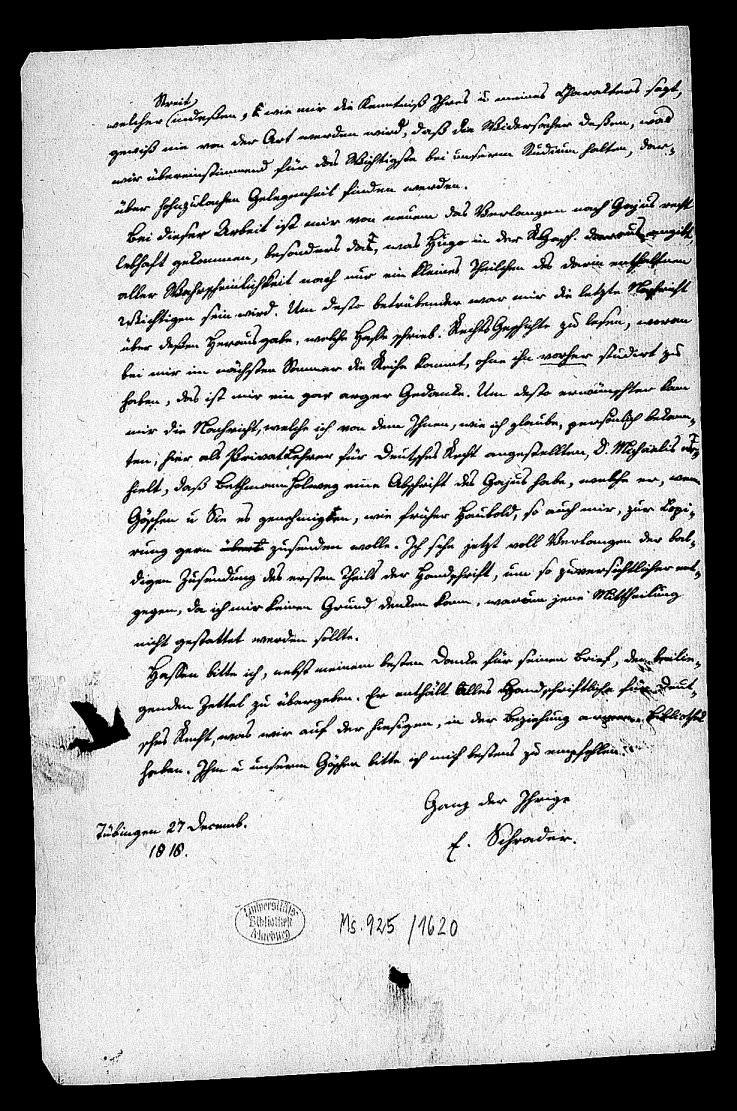 Streit,
welcher indeßen, wie mir die Kenntniß Ihres u meines Charakters sagt,
gewiß nie von der Art werden wird, daß die Widersacher deßen, was
wir übereinstimmend für das Wichtigste bei unserm Studium halten, dar-
über hohnzulachen Gelegenheit finden werden.
Bei dieser Arbeit ist mir von neuem das Verlangen nach Gajus recht
lebhaft gekommen, besonders da, was Hugo in der RGesch. daraus angibt,
aller Wahrscheinlichkeit nach nur ein kleines Theilchen des darin enthaltenen
Wichtigen sein wird. Um desto betrübender war mir die letzte Nachricht
über deßen Herausgabe, welche Haße schrieb. RechtsGeschichte zu lesen, woran
bei mir im nächsten Sommer die Reihe kommt, ohne ihn vorher studirt zu
haben, das ist mir ein gar arger Gedanke. Um desto erwünschter kam
mir die Nachricht, welche ich von dem Ihnen, wie ich glaube, persönlich bekann-
ten, hier als Privatlehrer für Deutsches Recht angestellten, D. Michaelis er-
hielt, daß Bethmann Holweg eine Abschrift des Gajus habe, welche er, wenn
Göschen u Sie es genehmigten, wie früher Haubold, so auch mir, zur Copi-
rung gern zusenden wolle. Ich sehe jetzt voll Verlangen der bal-
digen Zusendung des ersten Theils der Handschrift, um so zuversichtlicher ent-
gegen, da ich mir keinen Grund denken kann, warum jene Mittheilung
nicht gestattet werden sollte.
Hassen bitte ich, nebst meinem besten Danke für seinen Brief, den beilie-
genden Zettel zu übergeben. Er enthält alles Handschriftliche für Deut-
sches Recht, was wir auf der hiesigen, in der Beziehung armen Bibliothek
haben. Ihm u unserm Göschen bitte ich mich bestens zu empfehlen.
Ganz der Ihrige
Tübingen 27 Decemb.
E. Schrader.
1818.
Universitäts-
Bibliothek
Marburg
Ms. 925/1620